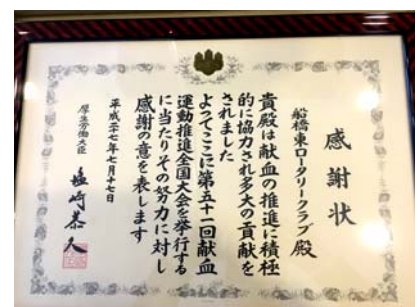 感謝状
船橋東ロータリークラブ殿
貴殿は献血の推進に積極
的に協力され多大の貢献を
されました
よってここに第五十一回献血
運動推進全国大会を挙行する
に当たりその努力に対し
感謝の意を表します
平成二十七年七月十七日
厚生労働大臣 塩崎恭久